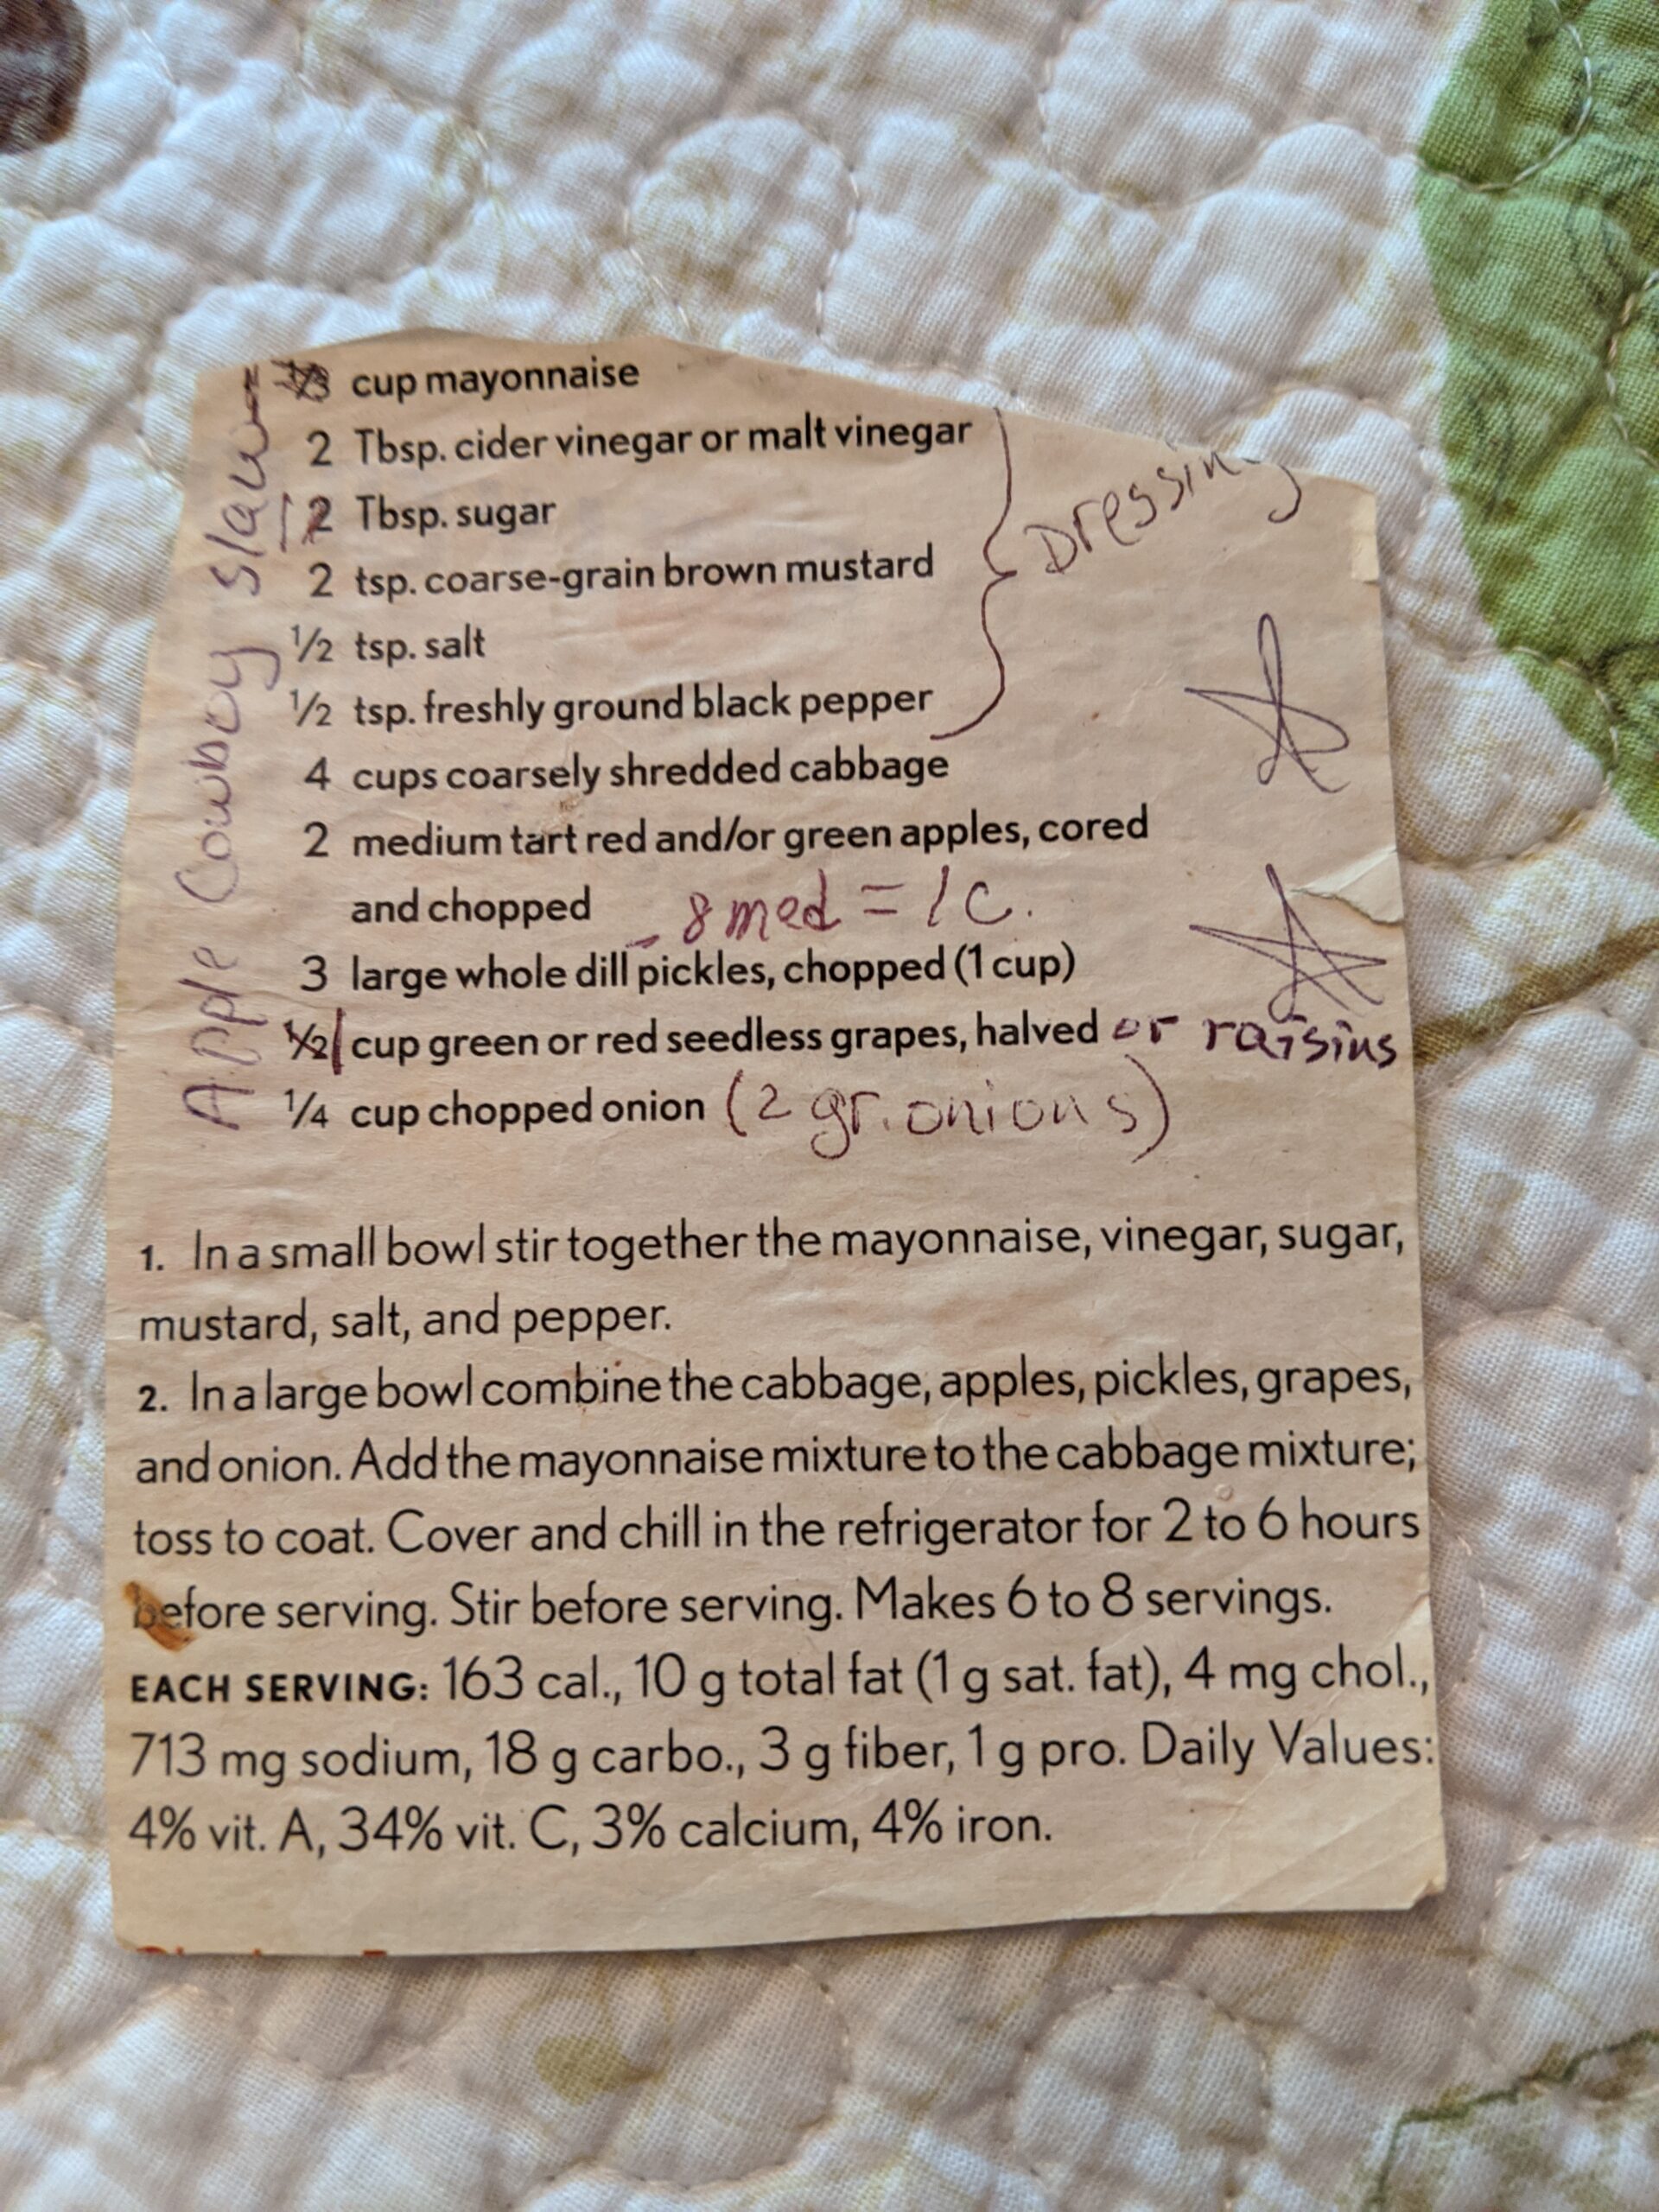 Apple Cowboy Slaw
cup mayonnaise
2 Tbsp. cider vinegar or malt vinegar
1 2 Tbsp. sugar
2 tsp. coarse-grain brown mustard
Dressing
½ tsp. salt
½ tsp. freshly ground black pepper
4 cups coarsely shredded cabbage
2 medium tart red and/or green apples, cored
and chopped
8 med = 1 C.
3 large whole dill pickles, chopped (1 cup)
½ 1 cup green or red seedless grapes, halved or raisins
¼ cup chopped onion (2 gr. onions)
1. In a small bowl stir together the mayonnaise, vinegar, sugar,
mustard, salt, and pepper.
2. In a large bowl combine the cabbage, apples, pickles, grapes,
and onion. Add the mayonnaise mixture to the cabbage mixture;
toss to coat. Cover and chill in the refrigerator for 2 to 6 hours
before serving. Stir before serving. Makes 6 to 8 servings.
EACH SERVING: 163 cal., 10 g total fat (1 g sat. fat), 4 mg chol.,
713 mg sodium, 18 g carbo., 3 g fiber, 1 g pro. Daily Values:
4% vit. A, 34% vit. C, 3% calcium, 4% iron.